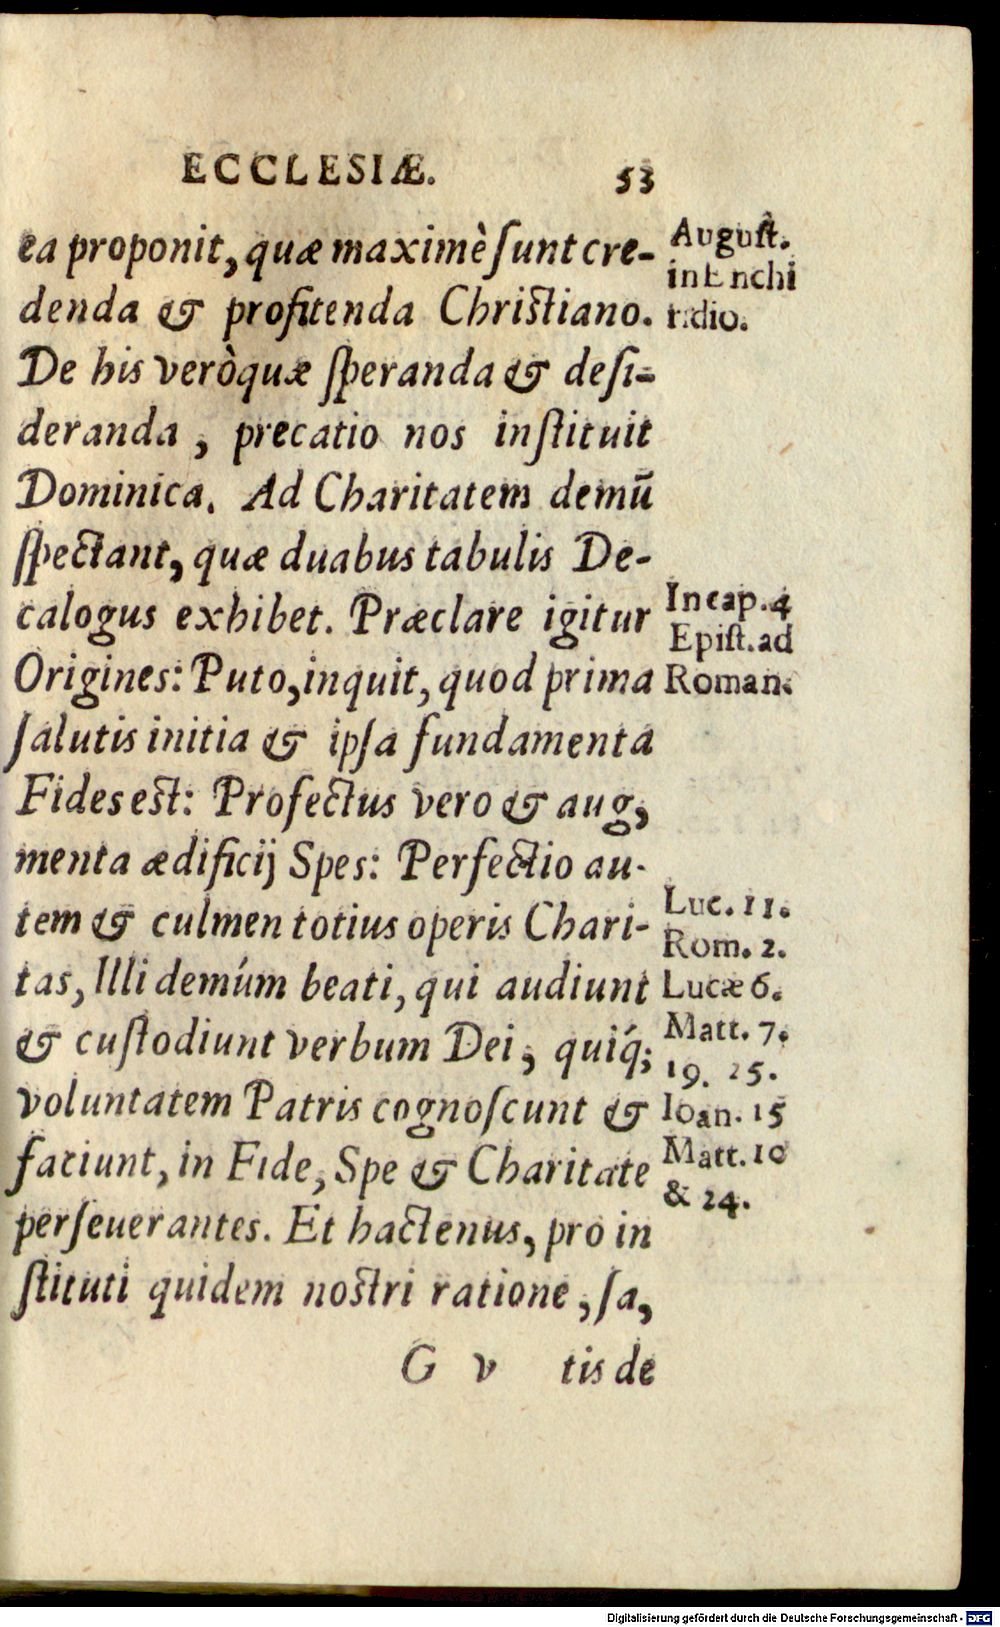 ECCLESIÆ. 53
ea proponit, quæ maximè ſunt cre-
denda & profitenda Chriſtiano.
De his verò quæ ſperanda & deſi-
deranda, precatio nos inſtituit
Dominica. Ad Charitatem demū
ſpectant, quæ duabus tabulis De-
calogus exhibet. Præclare igitur
Origines: Puto, inquit, quod prima
ſalutis initia & ipſa fundamenta
Fides est: Profectus vero & aug,
menta ædificij Spes: Perfectio au-
tem & culmen totius operis Chari-
tas, Illi demúm beati, qui audiunt
& cuſtodiunt verbum Dei, quiq́;
voluntatem Patris cognoſcunt &
faciunt, in Fide, Spe & Charitate
perſeuerantes. Et hactenus, pro in
ſtituti quidem noſtri ratione, ſa,
G v tis de
Auguſt.
in Enchi
ridio.
In cap. 4
Epiſt. ad
Roman.
Luc. 11.
Rom. 2.
Lucæ 6.
Matt. 7.
19. 25.
Ioan. 15
Matt. 10
& 24.
Digitalisierung gefördert durch die Deutsche Forschungsgemeinschaft - DFG